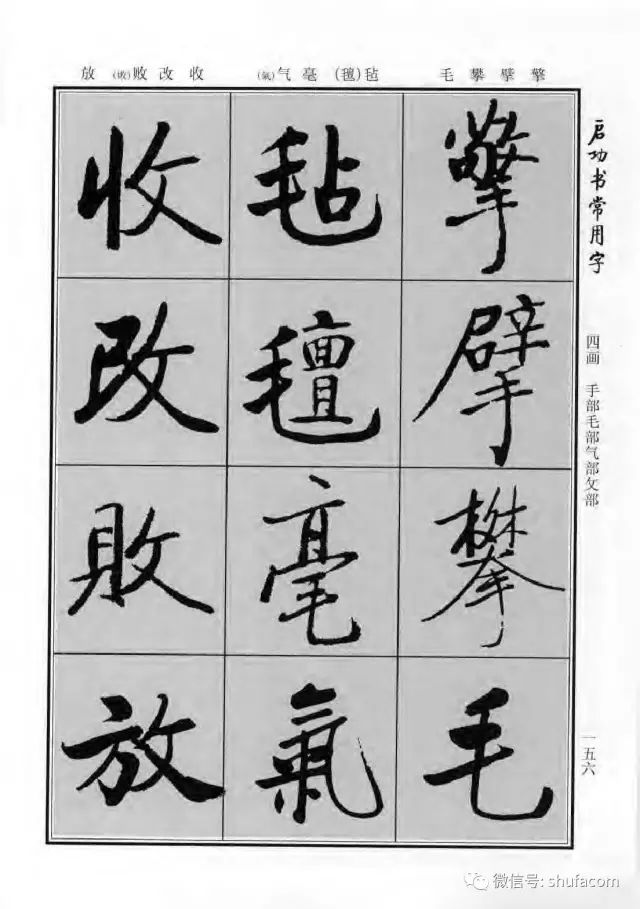 擎擘攀毛
毡(氈)毫气(氣)
收改败(敗)放
启功书常用字
四画 手部毛部气部攵部
一五六
擎擘攀毛
毡氈毫氣
收改敗放
微信号: shufacom